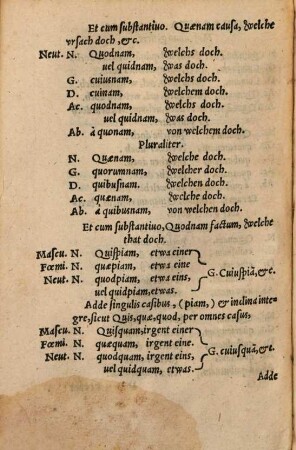 Et cum substantiuo. Quænam causa, welche
vrsach doch, &c.
Neut. N. Quodnam, welchs doch.
uel quidnam, was doch.
G. cuiusnam, welchs doch.
D. cuinam, welchem doch.
Ac. quodnam, welchs doch.
uel quidnam, was doch.
Ab. à quonam, von welchem doch.
Pluraliter.
N. Quænam, welche doch.
G. quorumnam, welcher doch.
D. quibusnam. welchen doch.
Ac. quænam, welche doch.
Ab. à quibusnam, von welchen doch.
Et cum substantiuo, Quodnam factum, welche
that doch.
Mascu. N. Quispiam, etwa einer
Fœmi. N. quæpiam, etwa eine
Neut. N. quodpiam, etwa eins,
uel quidpiam, etwas.
G. Cuiuspiã, &c.
Adde singulis casibus, (piam,) & inclina inte-
gre, sicut Quis, quæ, quod, per omnes casus,
Mascu. N. Quisquam, irgent einer
Fœmi. N. quæquam, irgent eine.
Neut. N. quodquam, irgent eins,
uel quidquam, etwas.
G. cuiusquã, &c.
Adde